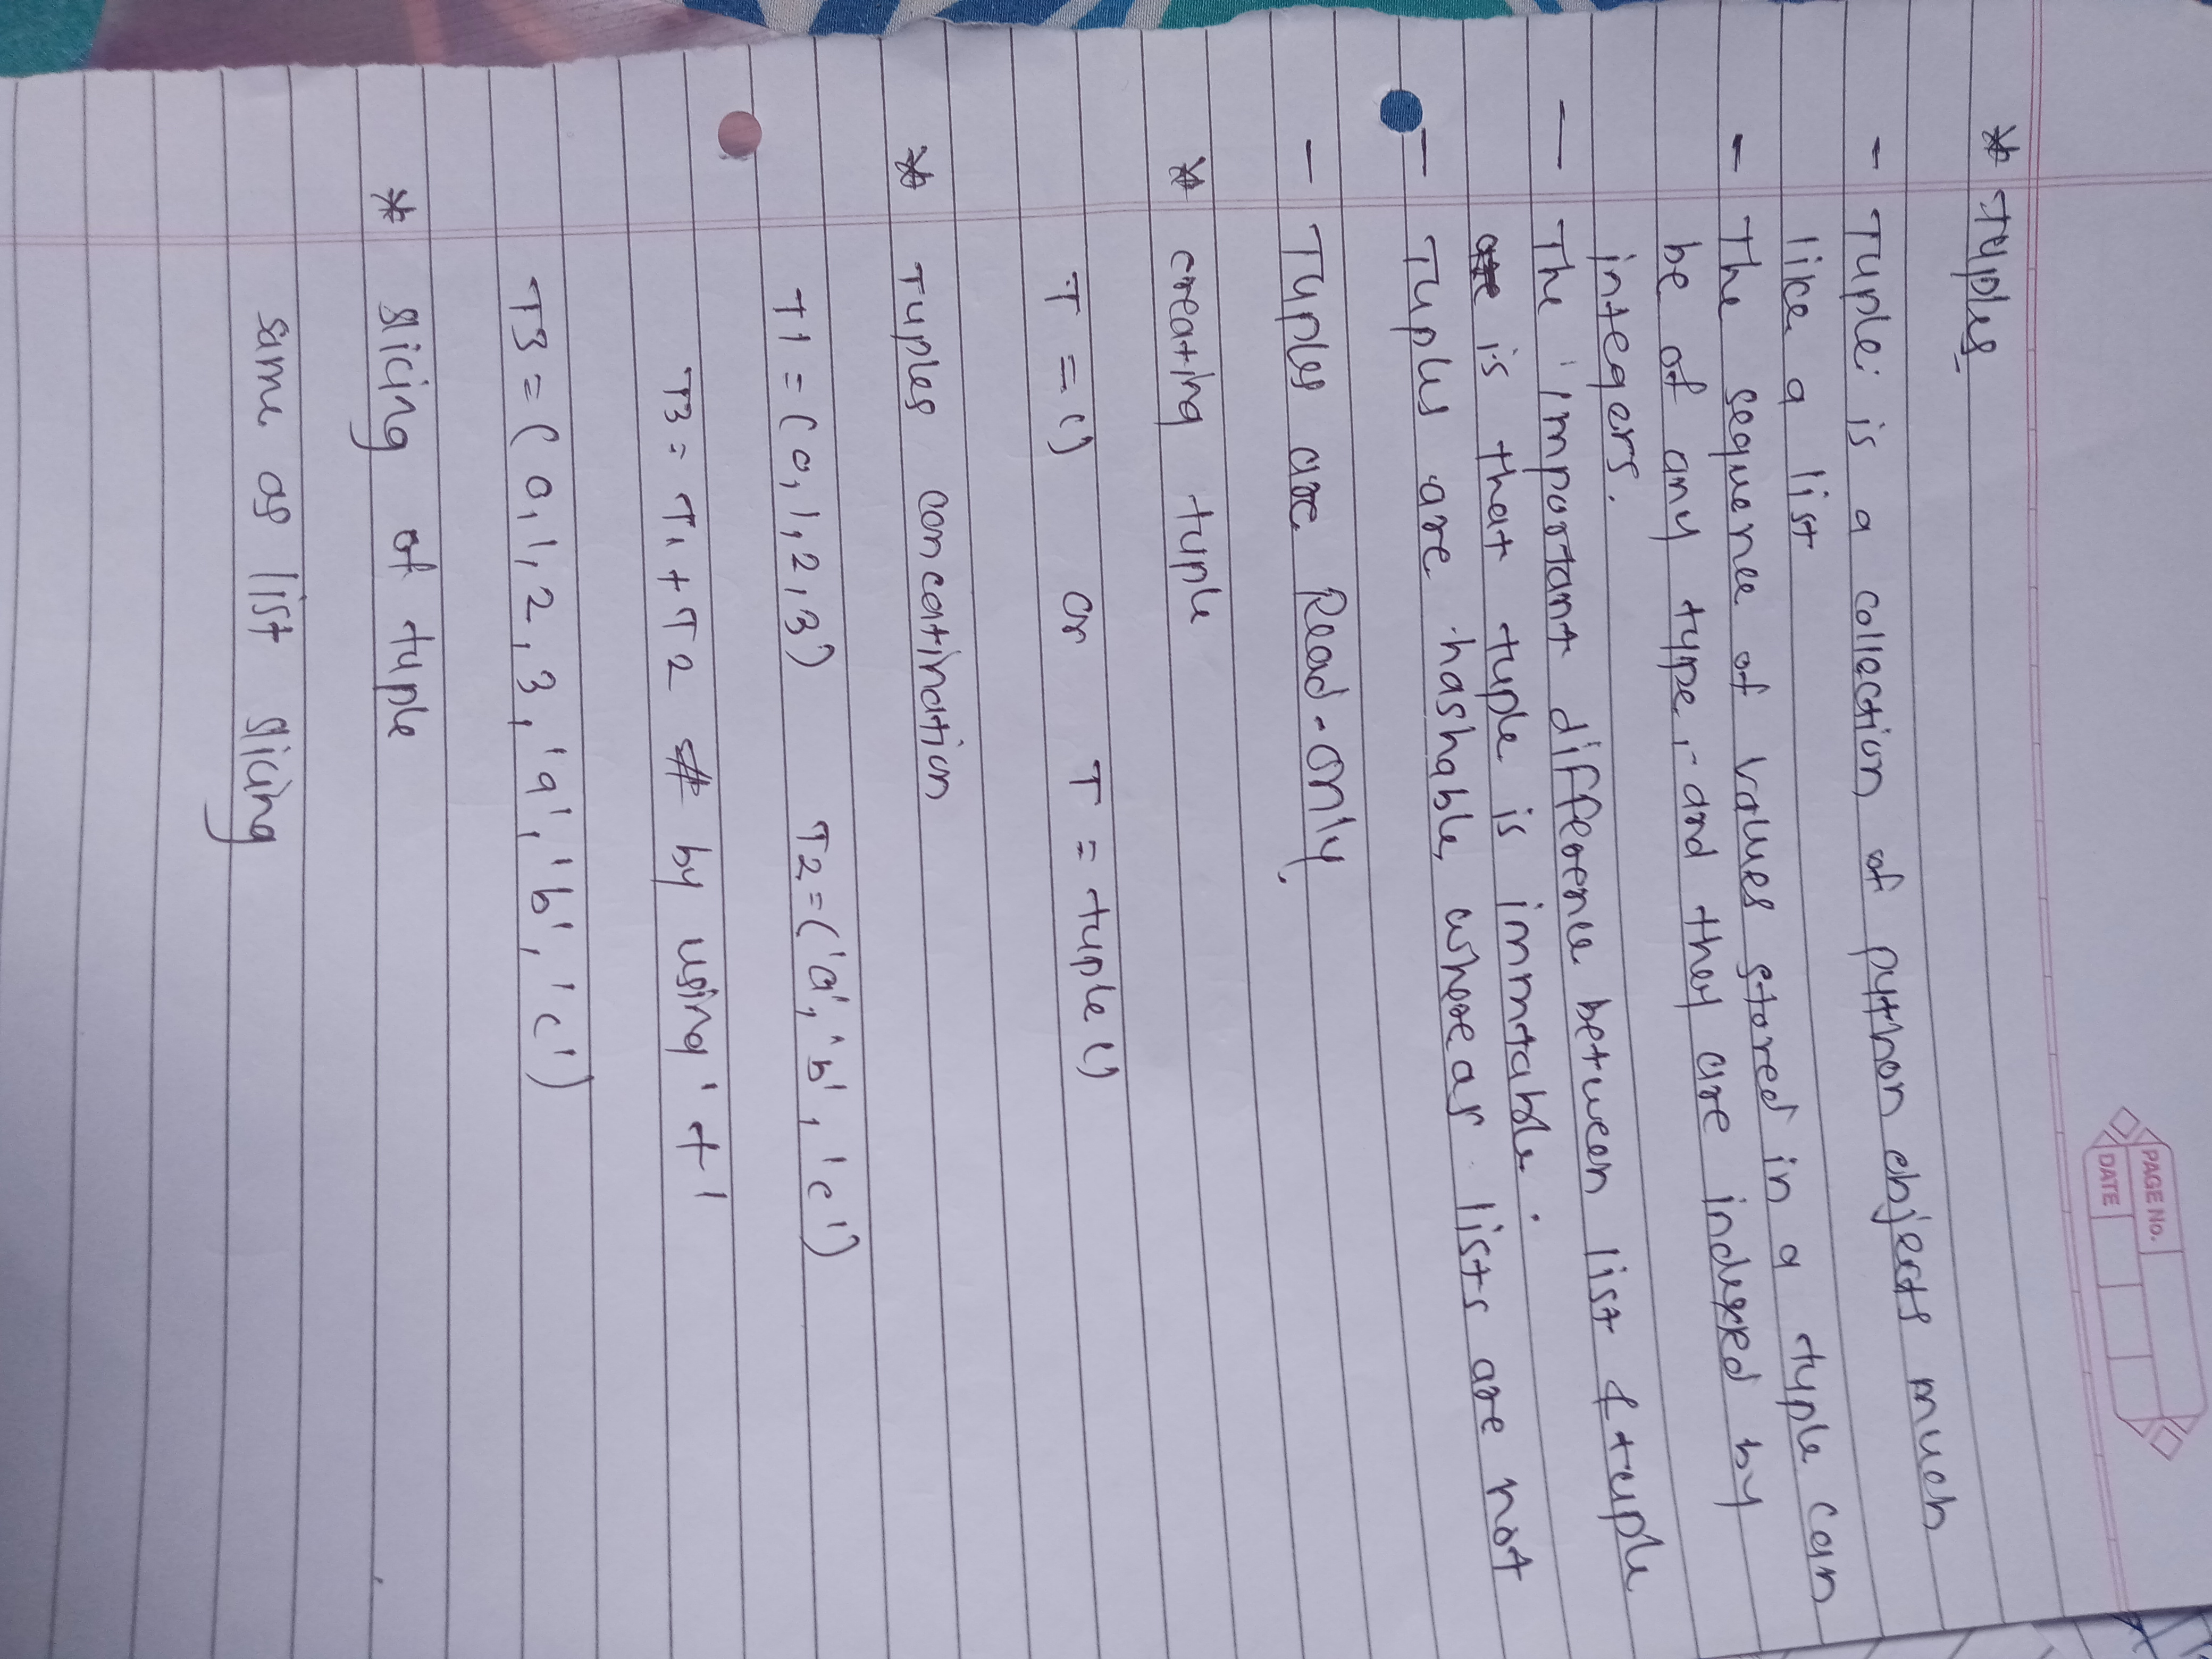 PAGE No.
DATE
* Tuples
- Tuple is a collection of python objects much
like a list
- The sequence of values stored in a tuple can
be of any type, and they are indexed by
integers.
- The important difference between list & tuple
is that tuple is immtable.
- Tuples are hashable whereas lists are not
- Tuples are Read-only.
* creating tuple
T = () or T = tuple ()
* Tuples concatination
T1 = (0, 1, 2, 3) T2 = ('a', 'b', 'c')
T3 = T1 + T2 # by using '+'
T3 = (0, 1, 2, 3, 'a', 'b', 'c')
* slicing of tuple
same as list slicing